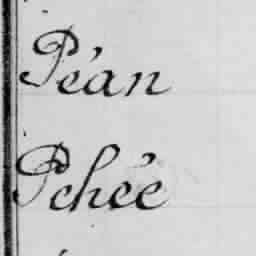 Péan
Pchée